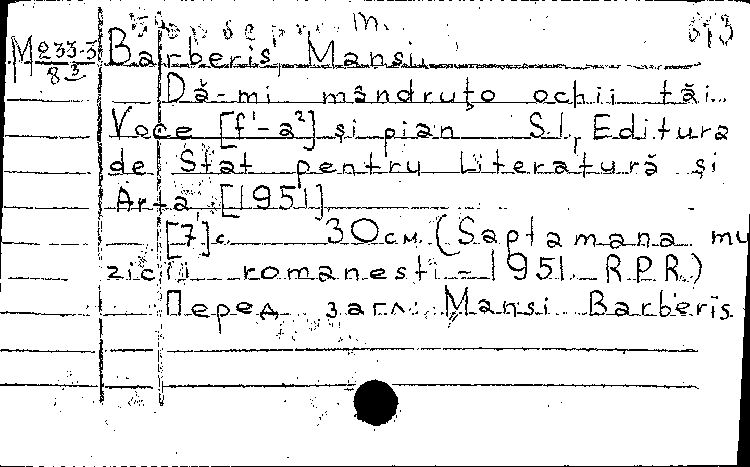 м. 693
М 233-3 Barberis, Mansi.
8 3
Dă-mi mândruțo ochii tăi..
Voce [f¹-a²] și pian S.l., Editura
de Stat pentru Literatură și
Arta [1951]
[7] с. 30см. (Saptamana mu
zicii romanesti - 1951. R.P.R.)
Перед загл.: Mansi Barberis